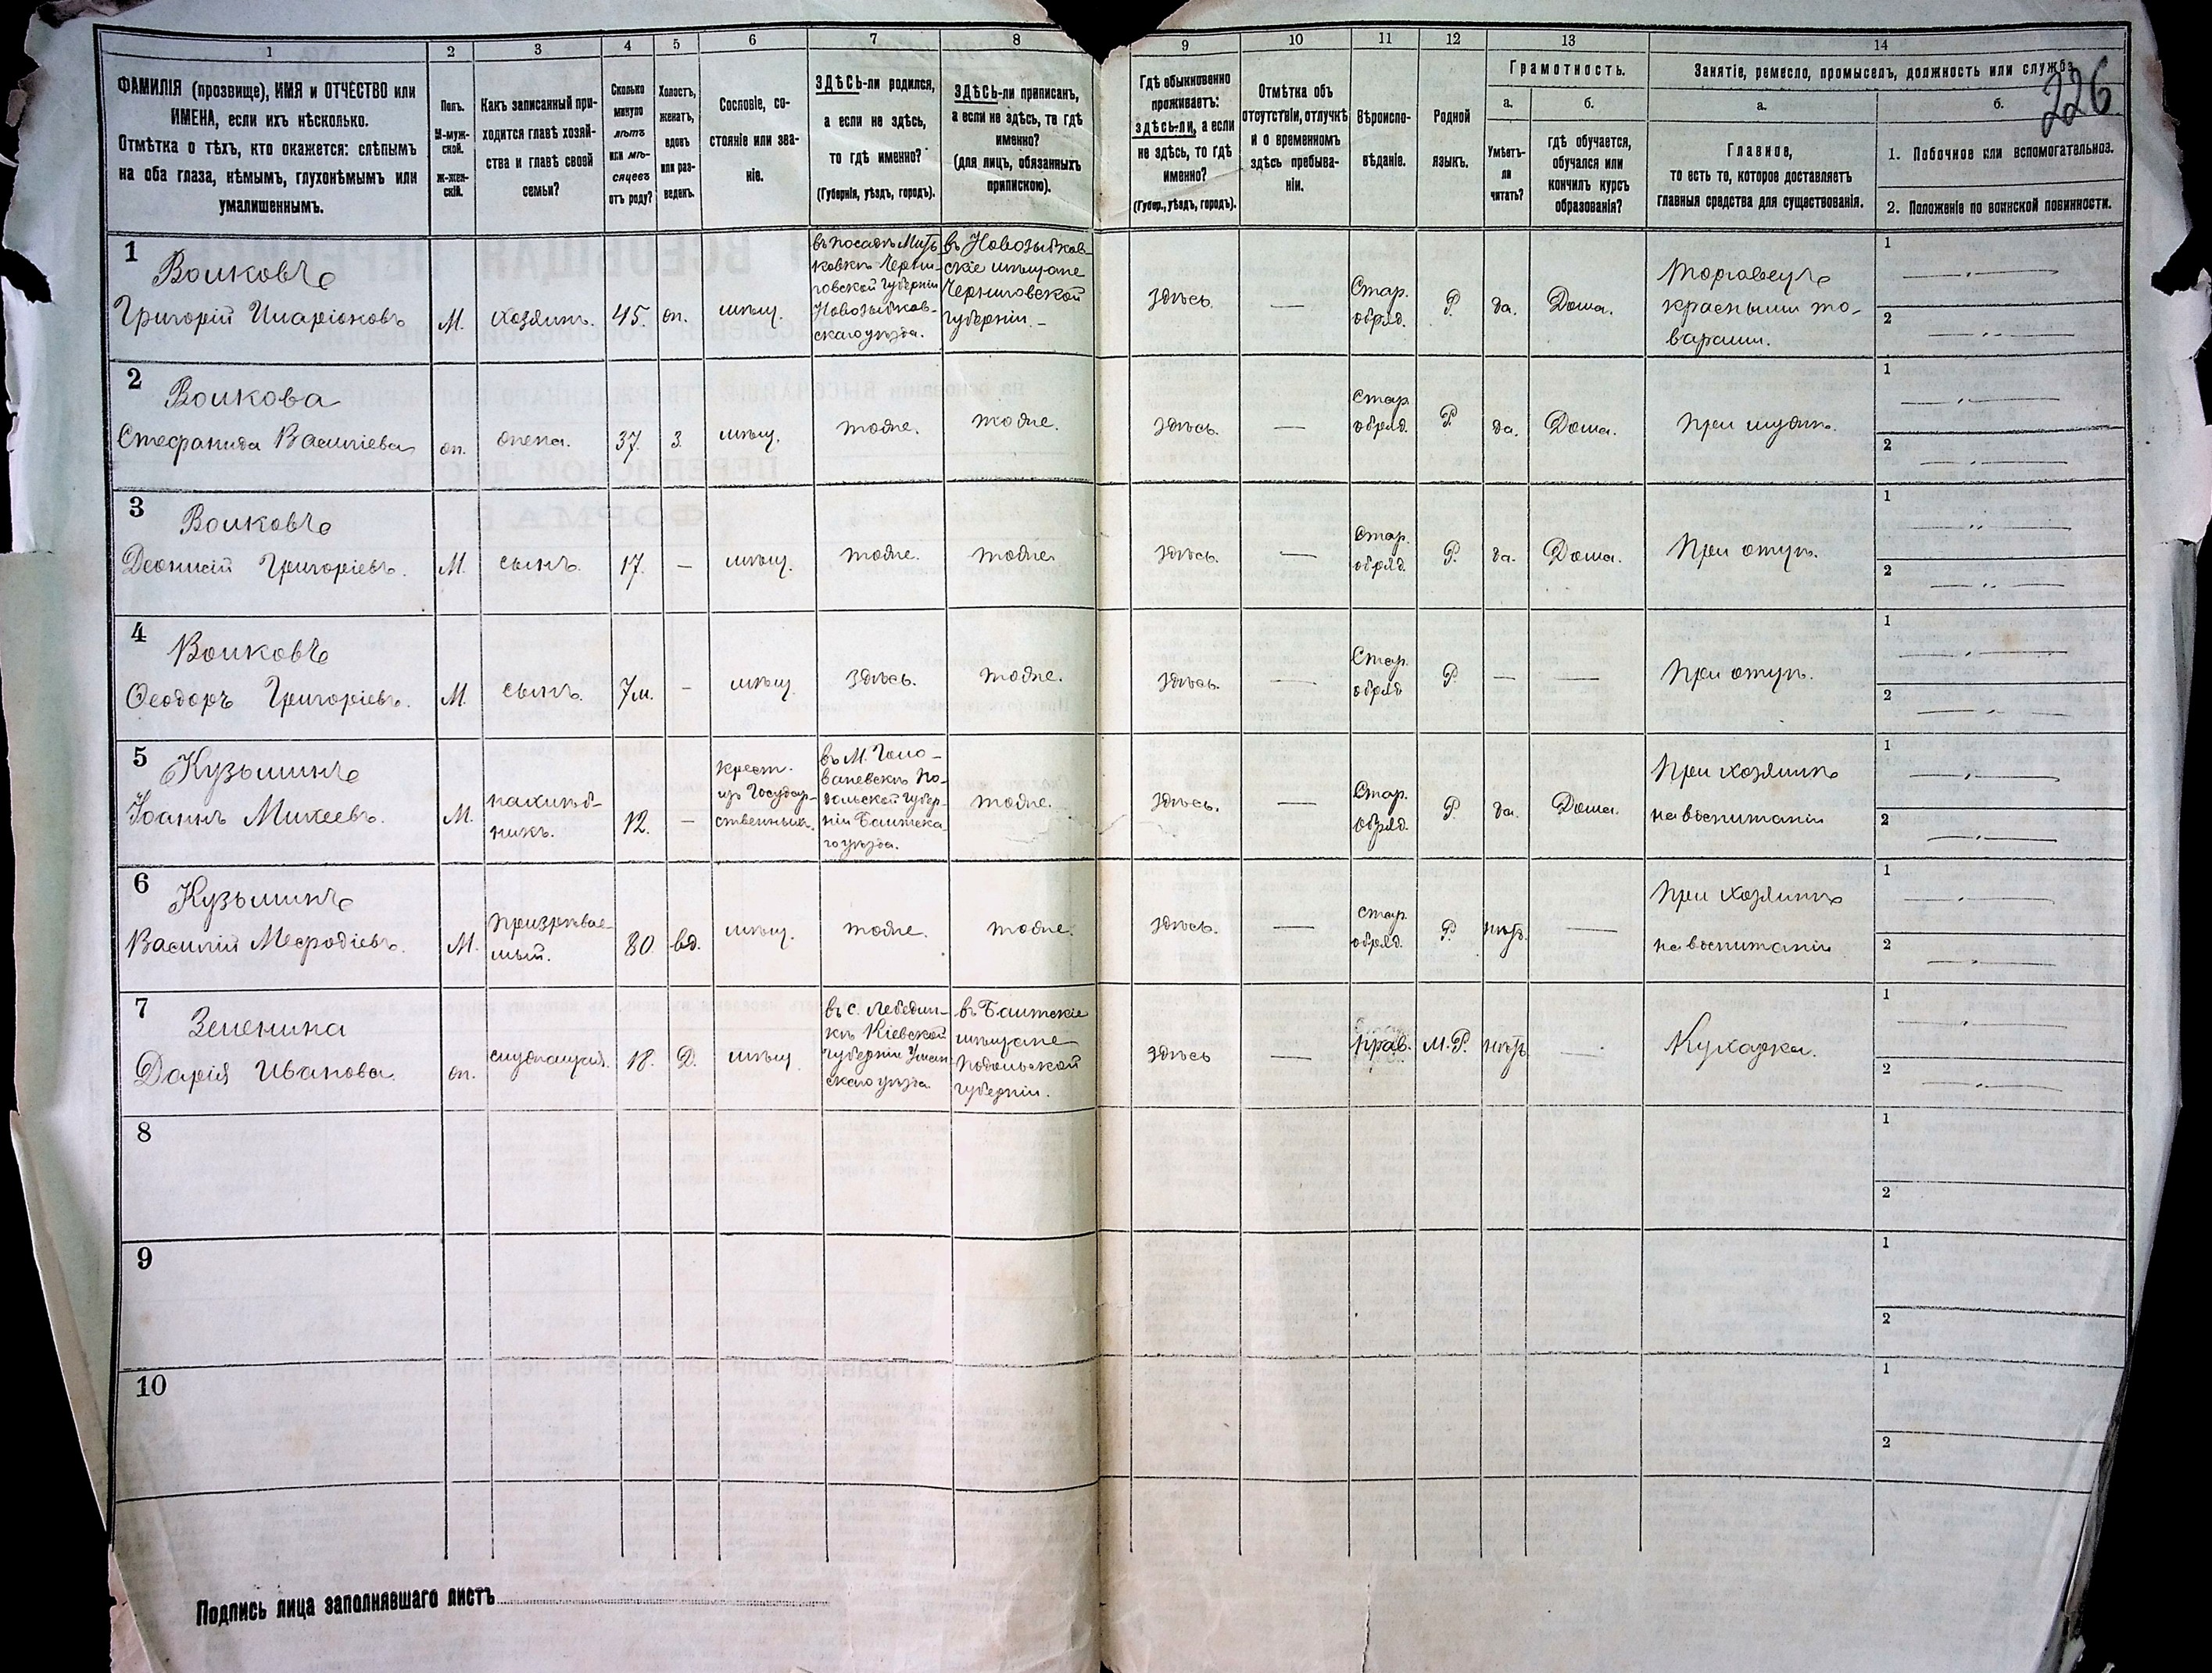 226
1 2 3 4 5 6 7 8 9 10 11 12 13 14
ФАМИЛІЯ (прозвище), ИМЯ и ОТЧЕСТВО или
ИМЕНА, если ихъ нѣсколько.
Отмѣтка о тѣхъ, кто окажется: слѣпымъ
на оба глаза, нѣмымъ, глухонѣмымъ или
умалишеннымъ.
Полъ.
М-муж-
ской.
Ж-жен-
скій.
Какъ записанный при-
ходится главѣ хозяй-
ства и главѣ своей
семьи?
Сколько
минуло
лѣтъ
или мѣ-
сяцевъ
отъ роду?
Холостъ,
женатъ,
вдовъ
или раз-
веденъ.
Сословіе, со-
стояніе или зва-
ніе.
ЗДѢСЬ-ли родился,
а если не здѣсь,
то гдѣ именно?
(Губернія, уѣздъ, городъ).
ЗДѢСЬ-ли приписанъ,
а если не здѣсь, то гдѣ
именно?
(для лицъ, обязанныхъ
припискою).
Гдѣ обыкновенно
проживаетъ:
здѣсь-ли, а если
не здѣсь, то гдѣ
именно?
(Губер., уѣздъ, городъ).
Отмѣтка объ
отсутствіи, отлучкѣ
и о временномъ
здѣсь пребыва-
ніи.
Вѣроиспо-
вѣданіе.
Родной
языкъ.
Грамотность.
а.
Умѣетъ-
ли
читать?
б.
гдѣ обучается,
обучался или
кончилъ курсъ
образованія?
Занятіе, ремесло, промыселъ, должность или служба
а.
Главное,
то есть то, которое доставляетъ
главныя средства для существованія.
б.
1. Побочное или вспомогательноэ.
2. Положеніе по воинской повинности.
1
Волковъ
Григорій Иларіоновъ
М.
хозяинъ.
45.
ж.
мѣщ.
въ посадѣ Мить
ковкѣ Черни-
говской губерніи
Новозыбков-
скаго уѣзда.
въ Новозыбков-
скіе мѣщане
Черниговской
губерніи.-
здѣсь.
—
Стар.
обряд.
Р.
да.
Дома.
Торговецъ
красными то-
варами.
1
2
2
Волкова
Стефанида Василіева
ж.
жена.
37.
З.
мѣщ.
тоже.
тоже.
здѣсь.
—
Стар.
обряд.
Р.
да.
Дома.
При мужѣ.
1
2
3
Волковъ
Деонисій Григоріевъ.
М.
сынъ.
17.
—
мѣщ.
тоже.
тоже.
здѣсь.
—
Стар.
обряд.
Р.
да.
Дома.
При отцѣ.
1
2
4
Волковъ
Ѳеодоръ Григоріевъ.
М.
сынъ.
7м.
–
мѣщ.
здѣсь.
тоже.
здѣсь.
—
Стар.
обряд
Р.
—
—
При отцѣ.
1
2
5
Кузьминъ
Іоаннъ Михеевъ.
М.
нахлѣб-
никъ.
12.
–
крест.
изъ Государ-
ственныхъ.
въ М. Голо-
ваневскѣ По-
дольской губер-
ніи Балтска-
го уѣзда.
тоже.
здѣсь.
—
Стар.
обряд.
Р.
да.
Дома.
При хозяинѣ
на воспитаніи
1
2
6
Кузьминъ
Василій Мефодіевъ.
М.
Призрѣвае-
мый.
80.
вд.
мѣщ.
тоже.
тоже.
здѣсь.
—
стар.
обряд.
Р.
нѣтъ.
—
При хозяинѣ
на воспитаніи
1
2
7
Зеленина
Дарія Иванова.
ж.
служащая.
18.
Д.
мѣщ
въ с. Лебедин-
кѣ Кіевской
губерніи Уман
скаго уѣзда
въ Балтскіе
мѣщане
Подольской
губерніи.
здѣсь
—
прав.
М.Р.
нѣтъ
—
Кухарка.
1
2
8
1
2
9
1
2
10
1
2
Подпись лица заполнявшаго листъ